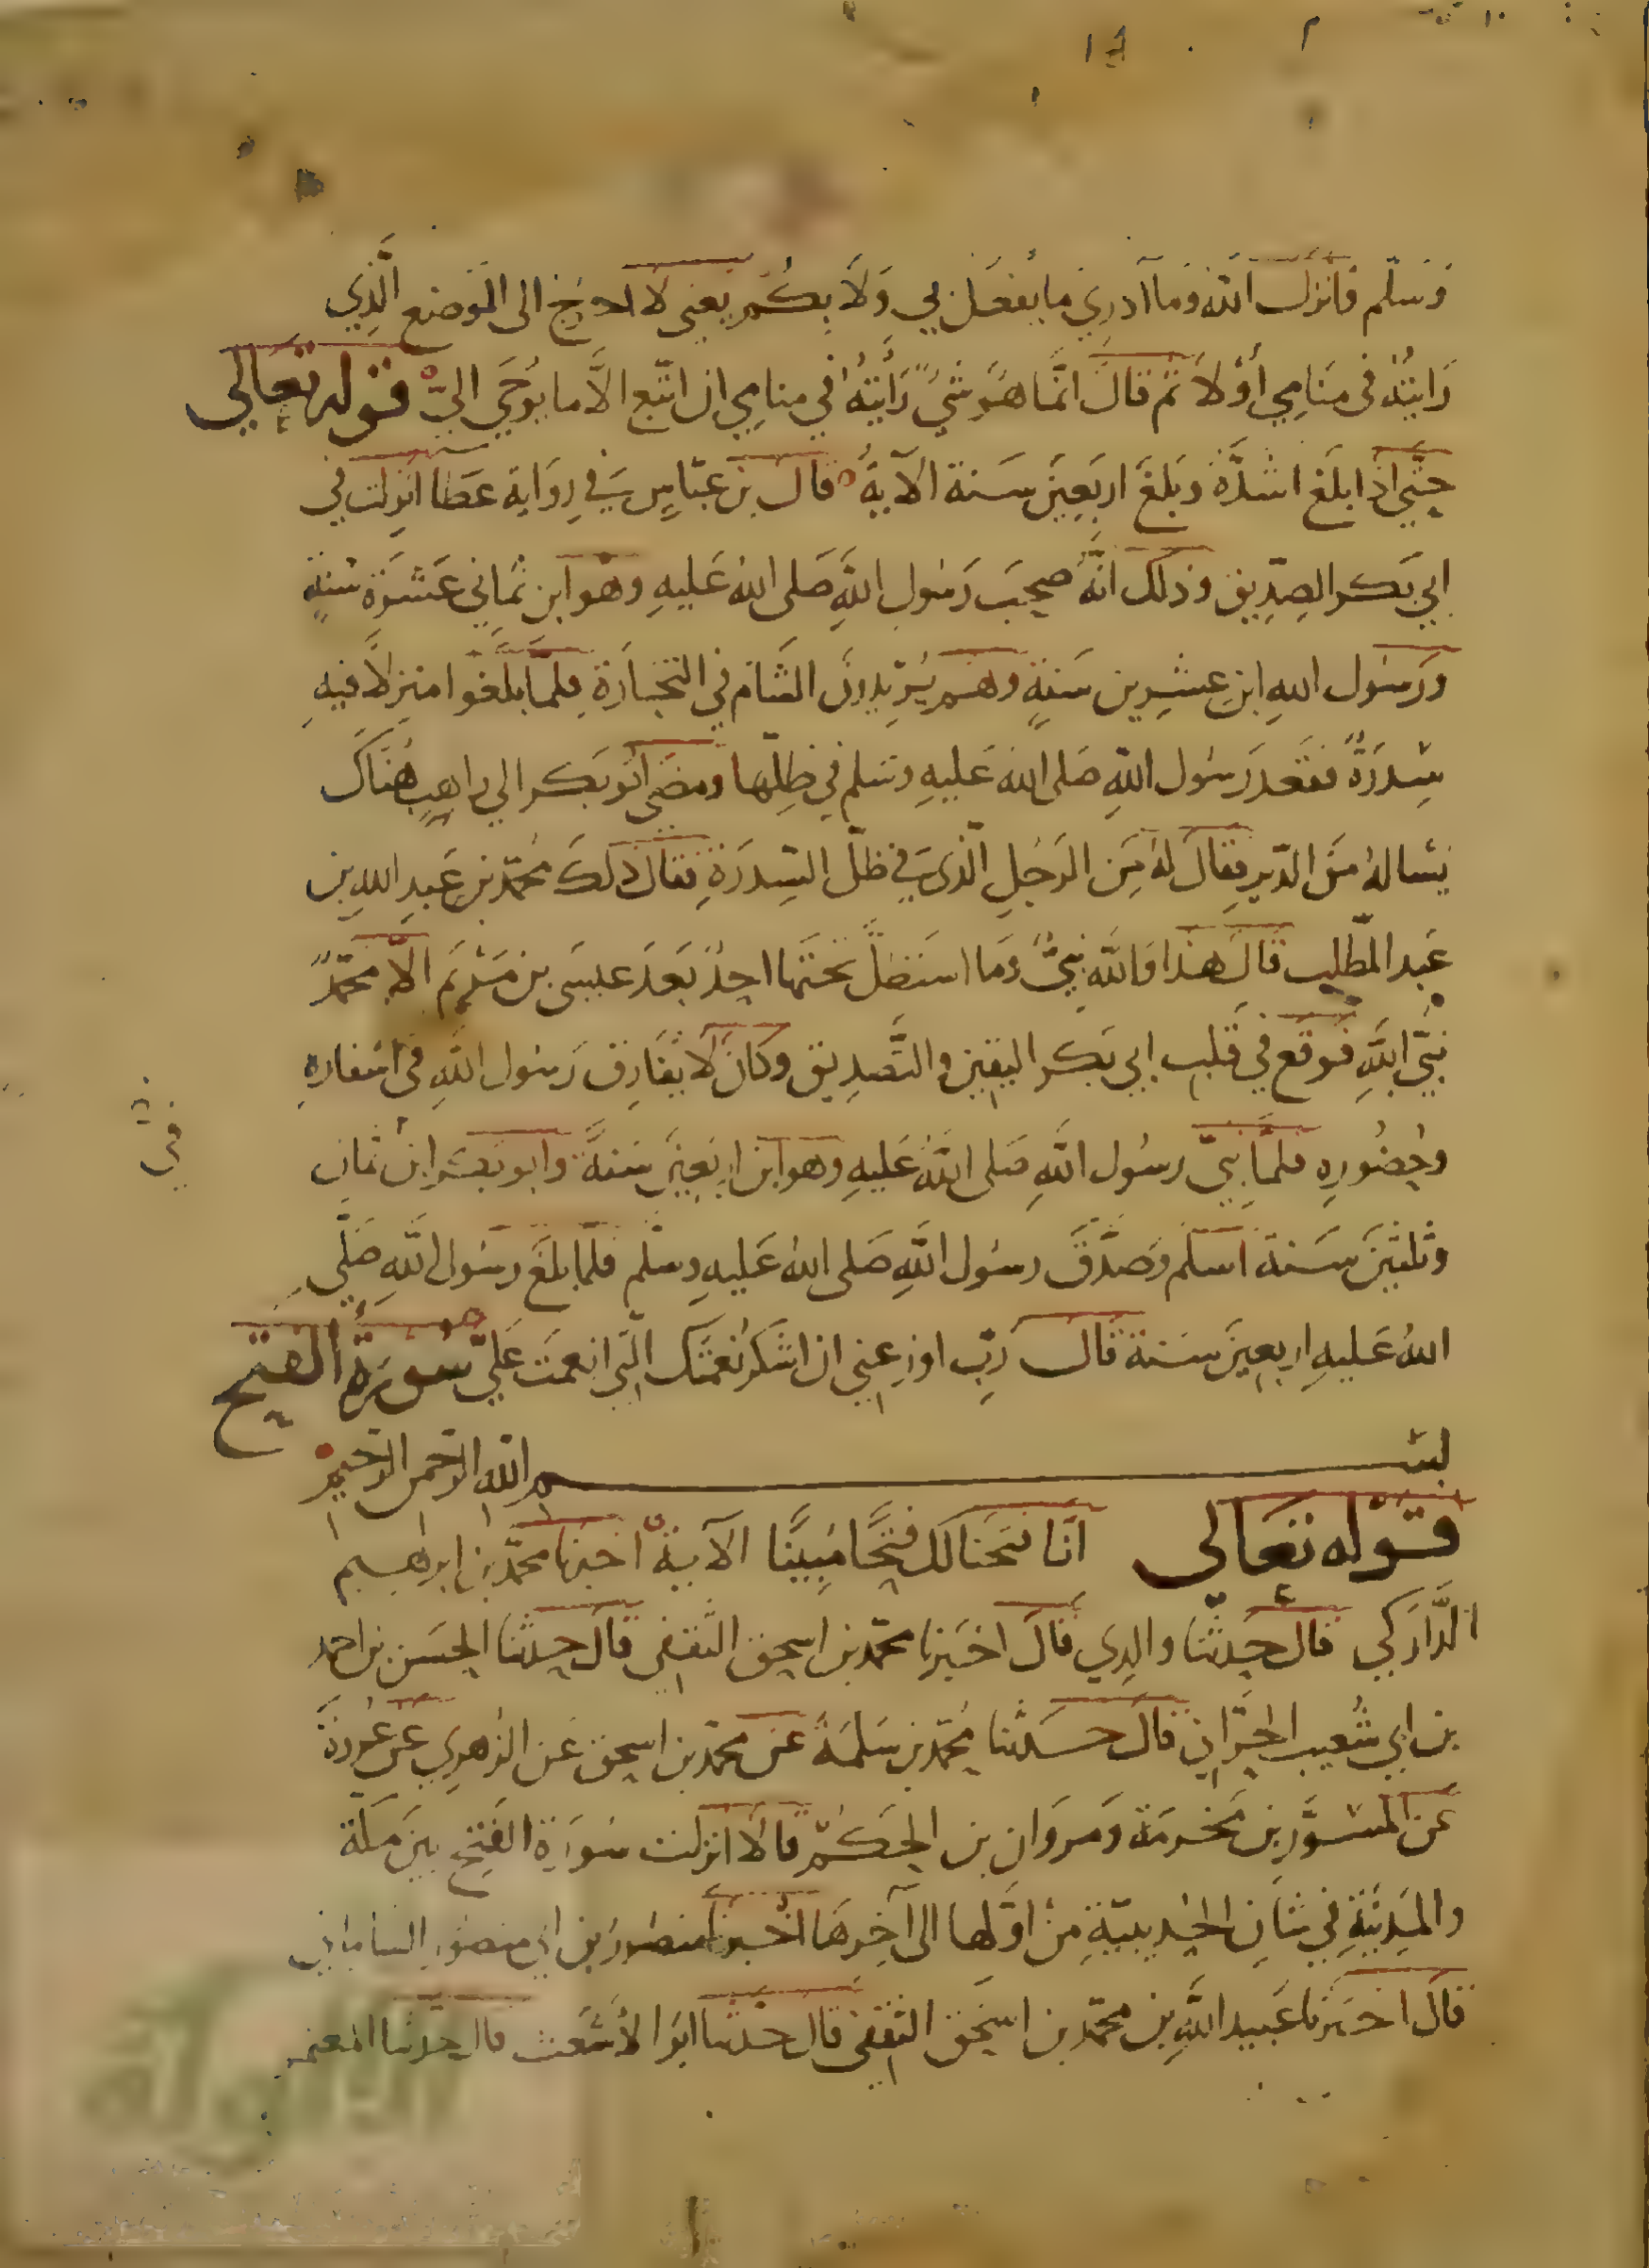 وَسَلّم فانزل الله وَما ادرِي ما يُفعَل بي وَلَا بِكُم يَعنى لا اخرج الى المَوضع الَّذِي
رَايتُهُ فى مَنامِي أوْلَا ثم قالَ انَّما هُوَ شَيٌ رَأَيتهُ في منامِي ان اتَّبع الَّا ما يُوحَي اليَّ قوله تعالى
حتَّى اذا بلَغ اشدَّهُ وَبلغَ اربَعينَ سَنة الآيةُ قال بن عبّاسٍ في رِوَاية عَطا انزِلت في
ابي بَكر الصِدّيق وذلك انَّهُ صحِبَ رَسُول اللَّهِ صَلى اللهُ عَليهِ وهو ابن ثَماني عَشَرَة سَنةٍ
ورَسُول اللهِ ابن عِشرِين سَنةٍ وهُم يُرِيدونَ الشَّام في التجَارَةِ فلمَّا بلَغوا منزِلًا فيهِ
سِدرَةٌ فقَعد رَسُول اللّهِ صَلى اللهُ عَليهِ وسَلم في ظِلّها ومضَى ابُو بَكر الي راهِبٍ هُنَاكَ
يَسالهُ عن الدّينِ فقالَ لهُ مَنِ الرَجُلِ الَّذى في ظلّ السِدرَةِ فقال ذلكَ مُحمّد بن عَبدِ اللهِ بن
عَبد المطّلِب قالَ هذا وَاللَّهِ نبيٌّ وَما استَظلَّ تحتَها احدٌ بَعدَ عيسَى بن مَريَم الَّا محمّدٌ
نبيّ اللَّهِ فوَقَع في قَلبِ ابي بَكر اليَقين والتَّصدِيق وكانَ لَا يفَارِق رَسُول اللَّهِ فى اسفارهِ
وحُضُورِهِ فلمَّا نبيّ رسُول اللَّهِ صَلى اللَّهُ عَليهِ وهو ابن اربَعينَ سَنةً وابو بَكر ابن ثمان
وثلثينَ سَنة اسلَم وصَدَّقَ رسُول اللَّهِ صَلى اللهُ عَليهِ وسَلّم فلمّا بلغَ رسُول اللَّهِ صَلَّي
اللهُ عَليهِ اربعينَ سَنة قالَ رَبِّ اوزِعني ان اشكرَ نعمَتك الّتي انعمتَ عَليَّ سُورَة الفتح
بسم الله الرَّحمن الرَّحيم
قوله تعالى انَّا فتَحنا لَك فَتحًا مُبينًا الآية اخبرنا محمّد بن ابراهيم
الدَّارَكي قال حدثنا والدِي قالَ اخبَرنا محمّد بن اسحق الثقفِي قال حدثنا الحسَن بن احمد
بن ابي شُعيب الحَرَّاني قالَ حدَّثنا مُحمّد بن سَلمَةَ عَن محمّد بن اسحق عَن الزُهرِي عَن عُروَةَ
عَن المسَوَّر بن مَخرمَة وَمروَان بن الحَكَمِ قالَا انزلت سُورَة الفَتح بينَ مَكّة
والمَدِينَةِ في شانِ الحُديبيّةِ مِن اوَّلها الى آخِرهَا اخبرنا منصُور بن ابي منصُور السَّاماني
قال اخبَرنا عَبيد اللَّهِ بن محمّد بن اسحَق الثقفي قال حدثنا ابو الأشعَث قال حدثنا المعتمر
في